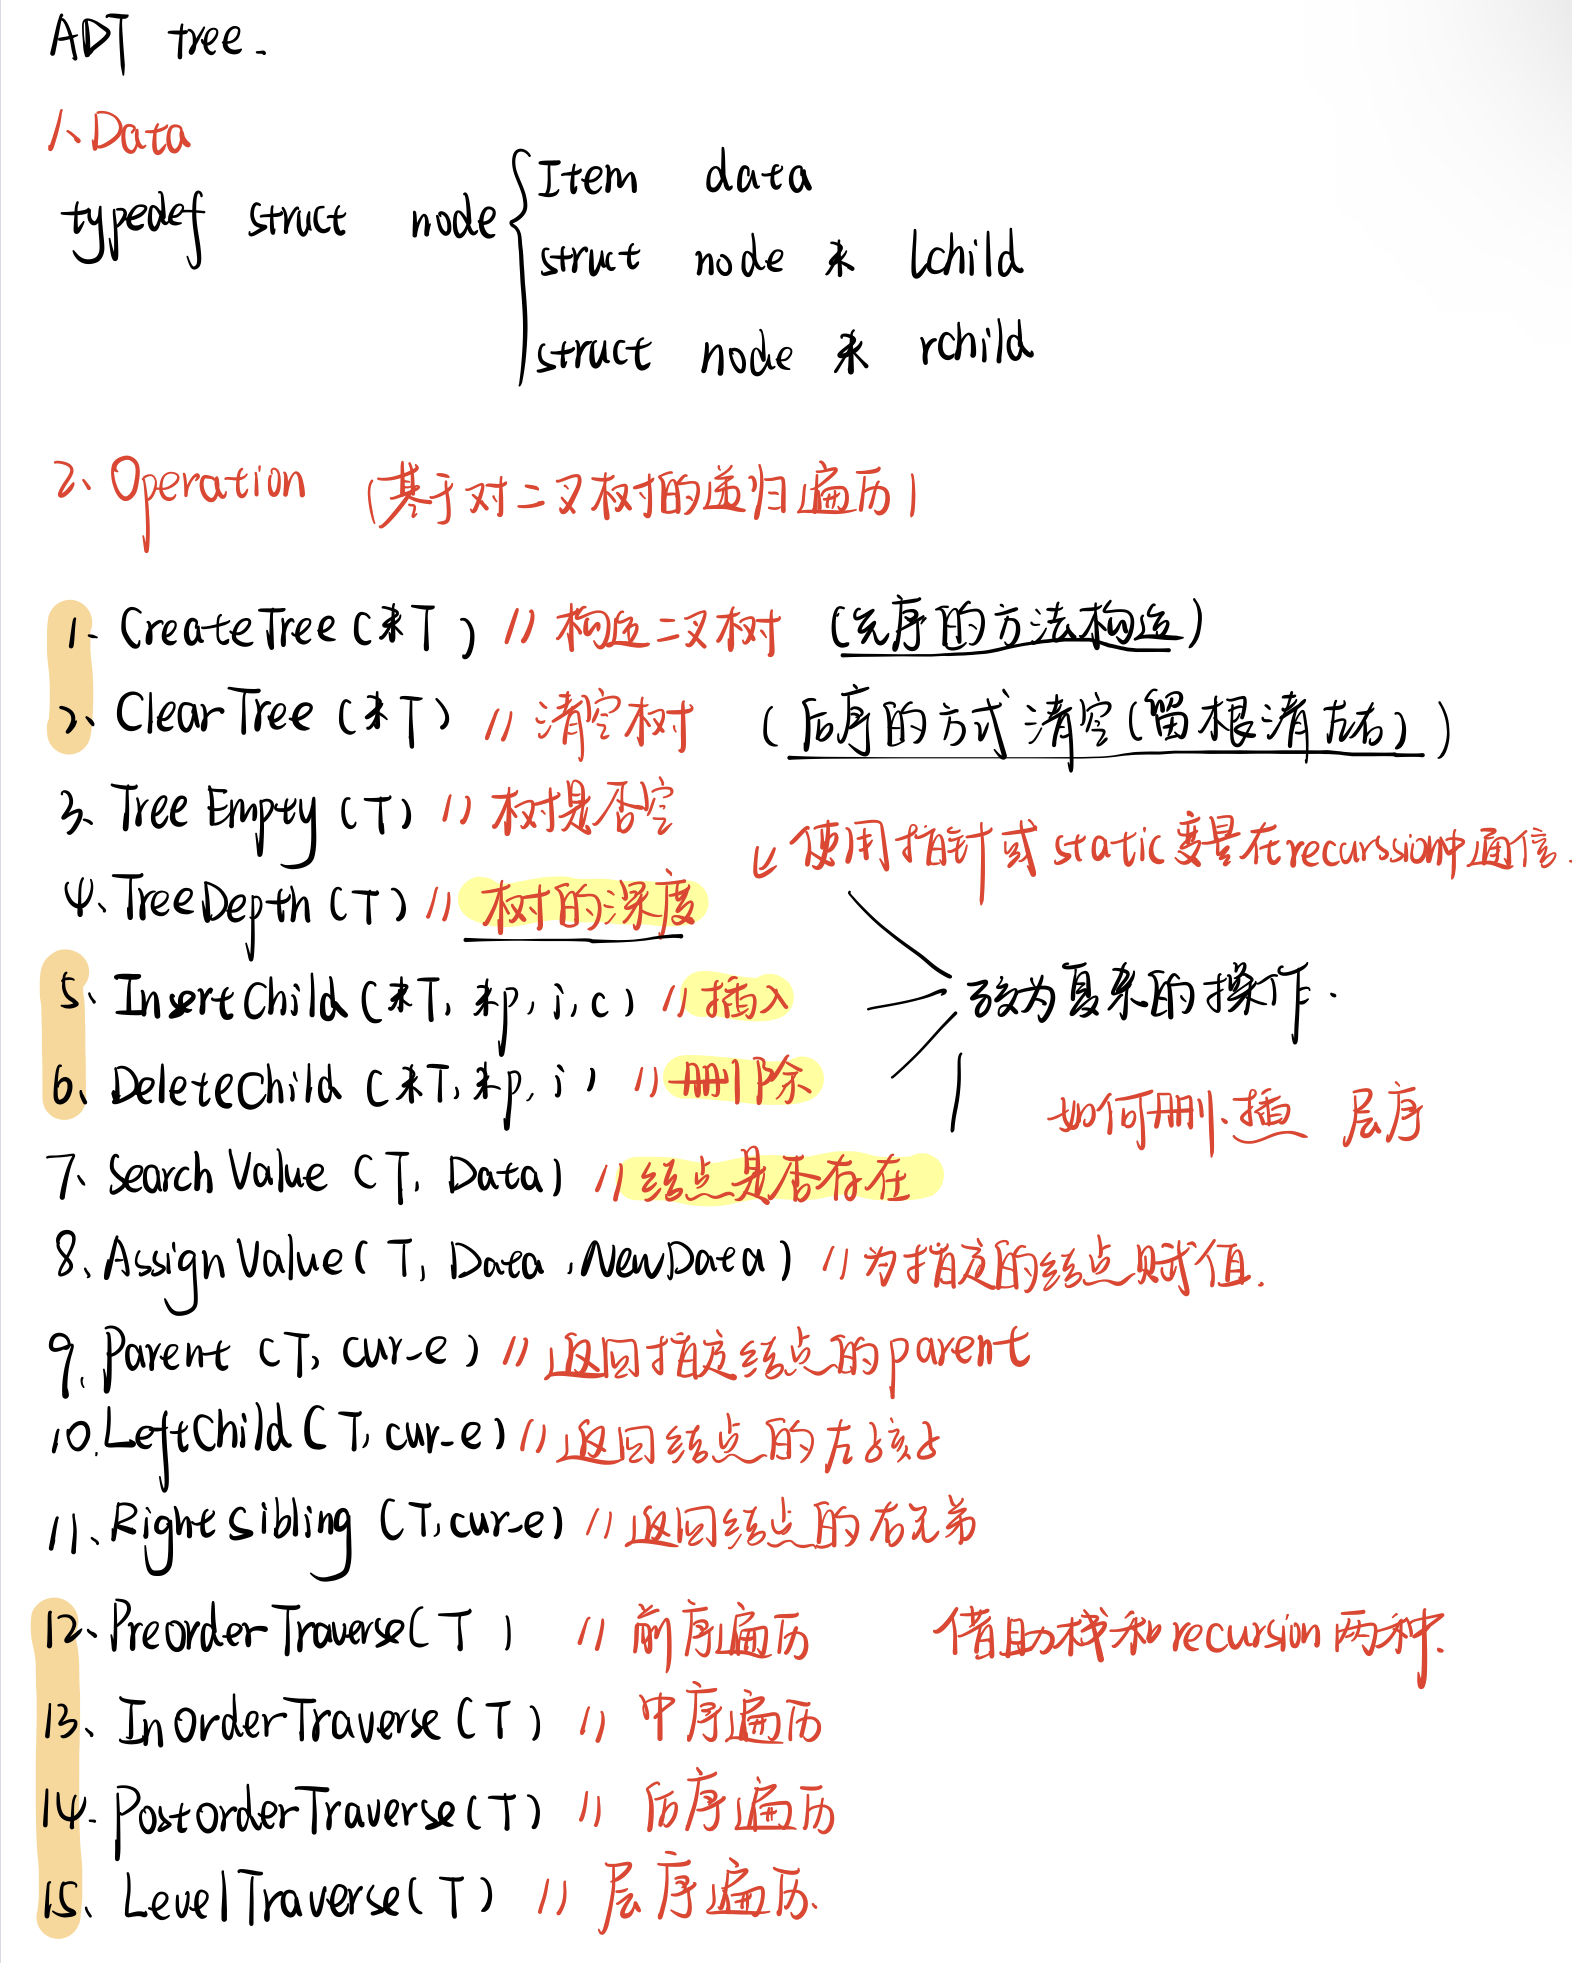 ADT tree.
1、Data
typedef struct node { Item data
struct node * lchild
struct node * rchild
2、Operation (基于对二叉树的递归遍历)
1. CreateTree (*T) // 构造二叉树 (先序的方法构造)
2、ClearTree (*T) // 清空树 (后序的方式清空(留根清左右))
3、Tree Empty (T) // 树是否空
↙ 使用指针或 static 变量在recurssion中通信.
4、TreeDepth (T) // 树的深度
5、InsertChild (*T, *p, i, c) // 插入
较为复杂的操作.
6、DeleteChild (*T, *p, i) // 删除
如何删、插 层序
7、Search Value (T, Data) // 结点是否存在
8、Assign Value (T, Data, NewData) // 为指定的结点赋值.
9. Parent (T, cur_e) // 返回指定结点的parent
10. LeftChild (T, cur_e) // 返回结点的左孩子
11、Right Sibling (T, cur_e) // 返回结点的右兄弟
12、Preorder Traverse (T) // 前序遍历 借助栈和recursion 两种.
13、InorderTraverse (T) // 中序遍历
14. PostorderTraverse (T) // 后序遍历
15、LevelTraverse (T) // 层序遍历.